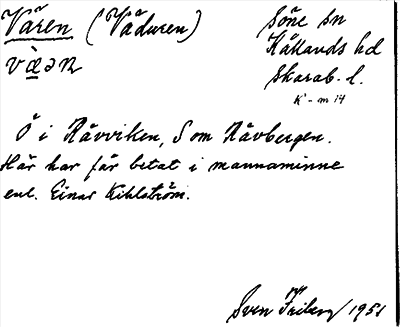 Våren (Våduren)
Söne sn
Kållands hd
Skarab. l.
K - m 14
Ö i Råvviken, S om Råvbergen.
Här har får betat i mannaminne
enl. Einar Kihlström.
Sven Friberg 1951